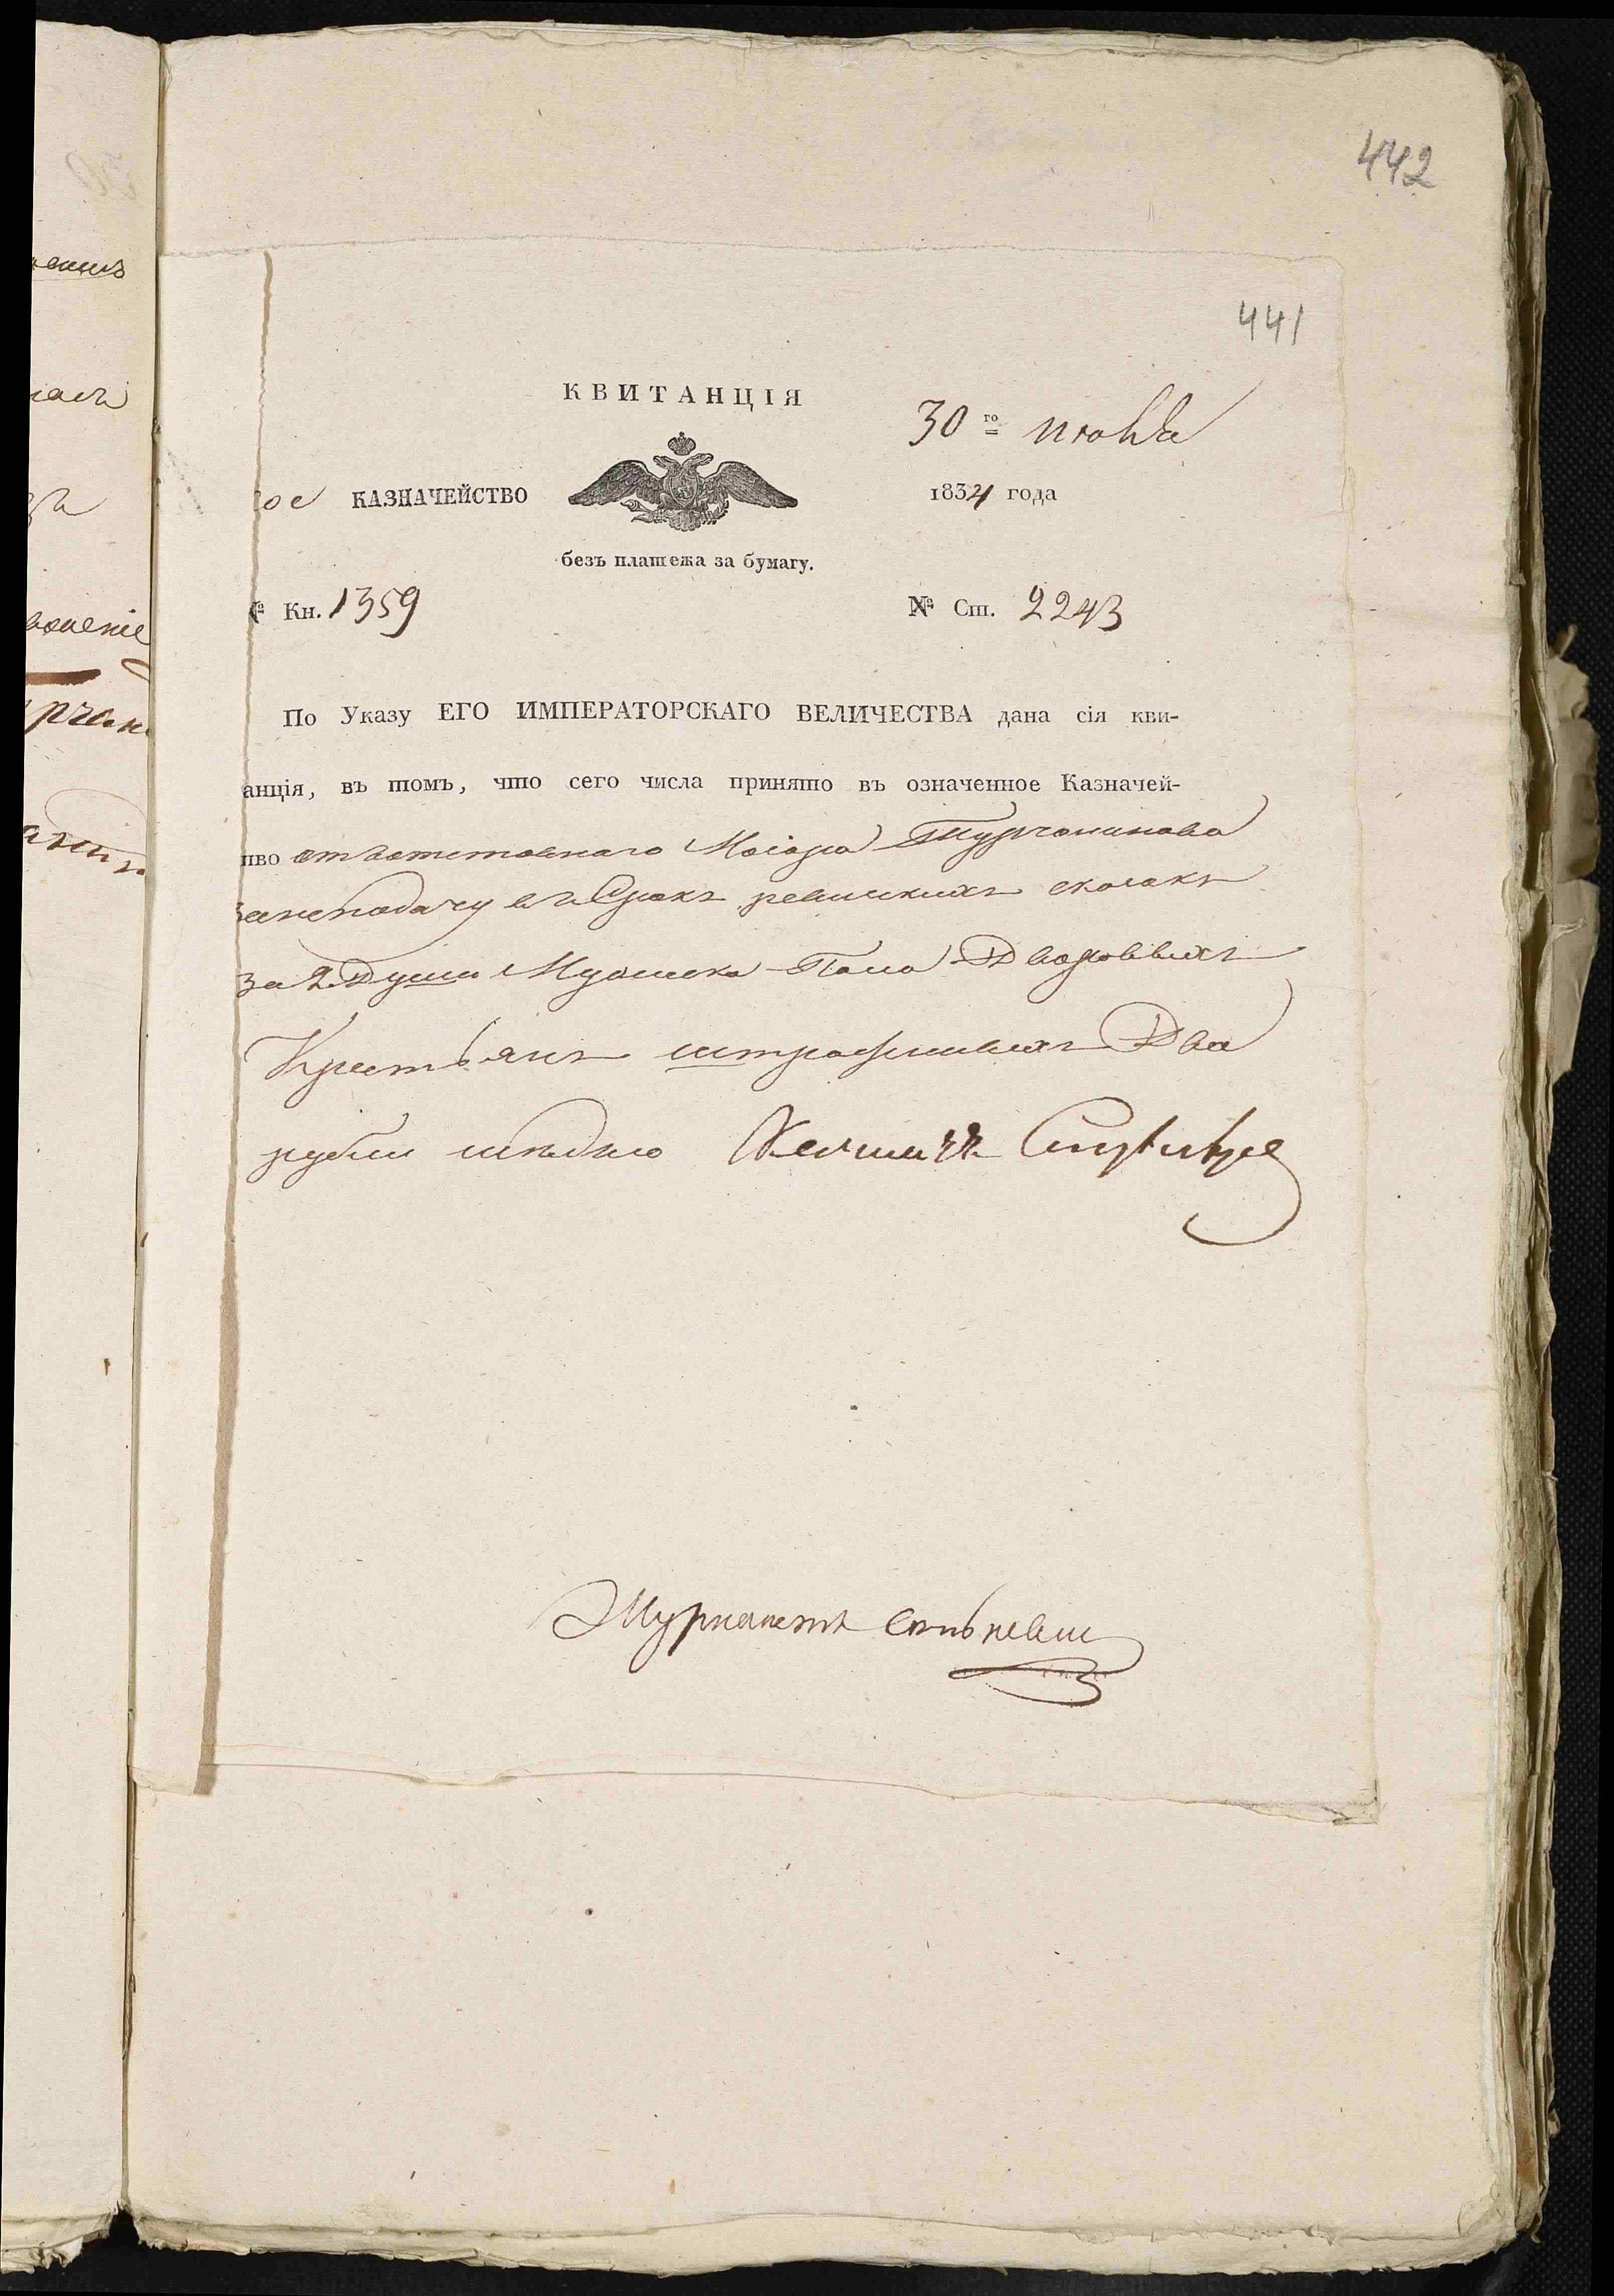 442
441
КВИТАНЦІЯ
30го июня
ое КАЗНАЧЕЙСТВО
1834 года
безъ платежа за бумагу.
№ Кн. 1359
№ Ст. 2243
По Указу ЕГО ИМПЕРАТОРСКАГО ВЕЛИЧЕСТВА дана сія кви-
анція, въ томъ, что сего числа принято въ означенное Казначей-
тво отъ отставнаго Маіора Турчанинова
за неподачу въ Срокъ ревизкихъ сказокъ
за 2 Души Мужеска Пола Дворовыхъ
Крестьянъ штрафныхъ Два
рубли мѣдью